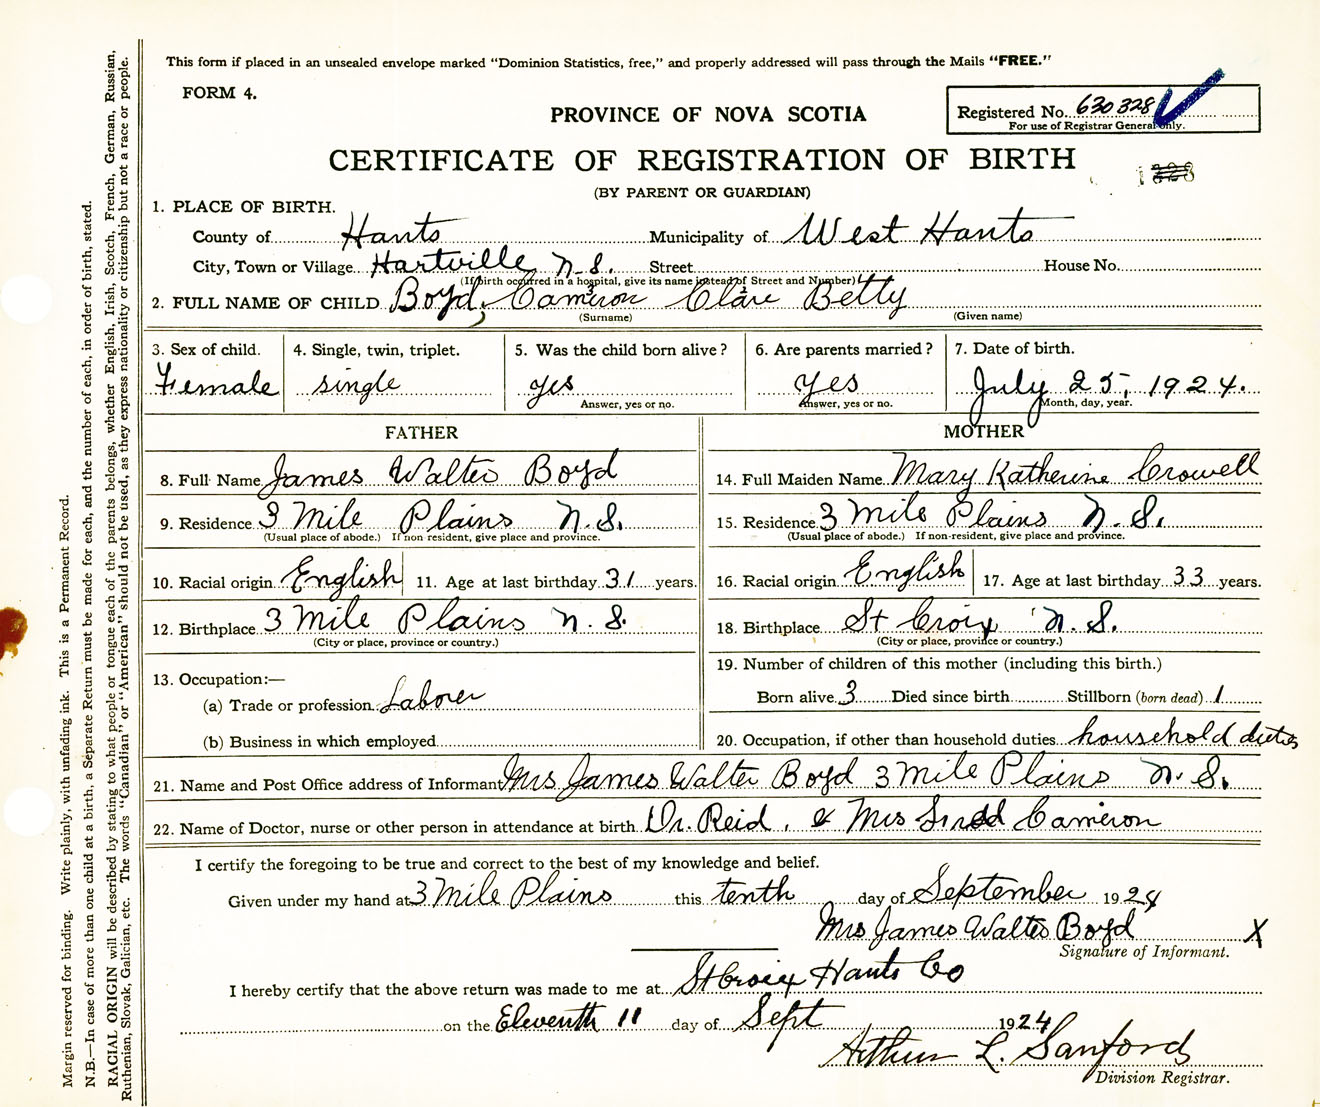 This form if placed in an unsealed envelope marked "Dominion Statistics, free," and properly addressed will pass through the Mails "FREE."
FORM 4.
PROVINCE OF NOVA SCOTIA
Registered No. 630328
For use of Registrar General only.
CERTIFICATE OF REGISTRATION OF BIRTH
(BY PARENT OR GUARDIAN)
1. PLACE OF BIRTH.
County of Hants Municipality of West Hants
City, Town or Village Hartville N.S. Street House No.
(If birth occurred in a hospital, give its name instead of Street and Number)
2. FULL NAME OF CHILD Boyd, Cameron Clare Betty
(Surname) (Given name)
3. Sex of child. 4. Single, twin, triplet. 5. Was the child born alive? 6. Are parents married? 7. Date of birth.
Female single yes yes July 25, 1924.
Answer, yes or no. Answer, yes or no. Month, day, year.
FATHER
8. Full Name James Walter Boyd
9. Residence 3 Mile Plains N.S.
(Usual place of abode.) If non resident, give place and province.
10. Racial origin English 11. Age at last birthday 31 years.
12. Birthplace 3 Mile Plains N.S.
(City or place, province or country.)
13. Occupation:—
(a) Trade or profession Laborer
(b) Business in which employed
MOTHER
14. Full Maiden Name Mary Katherine Crowell
15. Residence 3 Mile Plains N.S.
(Usual place of abode.) If non-resident, give place and province.
16. Racial origin English 17. Age at last birthday 33 years.
18. Birthplace St Croix N.S.
(City or place, province or country.)
19. Number of children of this mother (including this birth.)
Born alive 3 Died since birth Stillborn (born dead) 1
20. Occupation, if other than household duties household duties
21. Name and Post Office address of Informant Mrs James Walter Boyd 3 Mile Plains N.S.
22. Name of Doctor, nurse or other person in attendance at birth Dr. Reid, & Mrs Cameron
I certify the foregoing to be true and correct to the best of my knowledge and belief.
Given under my hand at 3 Mile Plains this tenth day of September 1924
Mrs James Walter Boyd X
Signature of Informant.
I hereby certify that the above return was made to me at St Croix Hants Co
on the Eleventh 11 day of Sept 1924
Arthur L. Sanford
Division Registrar.
Margin reserved for binding. Write plainly, with unfading ink. This is a Permanent Record.
N.B.—In case of more than one child at a birth, a Separate Return must be made for each, and the number of each, in order of birth, stated.
RACIAL ORIGIN will be described by stating to what people or tongue each of the parents belongs, whether English, Irish, Scotch, French, German, Russian,
Ruthenian, Slovak, Galician, etc. The words "Canadian" or "American" should not be used, as they express nationality or citizenship but not a race or people.